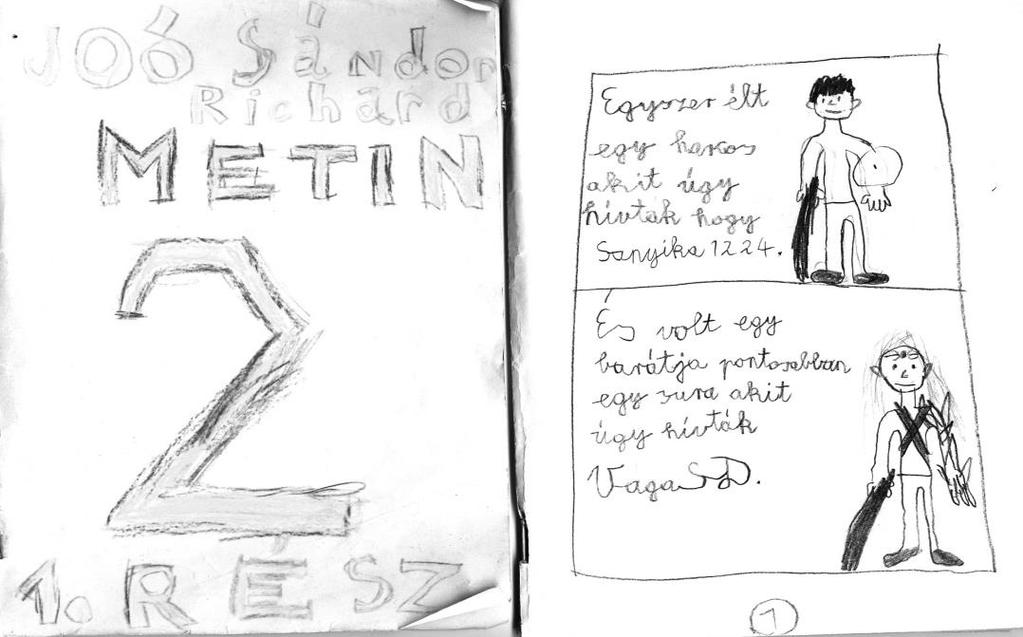 JOÓ Sándor
Richárd
METIN
2
1. RÉSZ
Egyszer élt
egy harcos
akit úgy
hívták hogy
Sanyika1224.
És volt egy
barátja pontosabban
egy sura akit
úgy hívták
VagaSD.
1